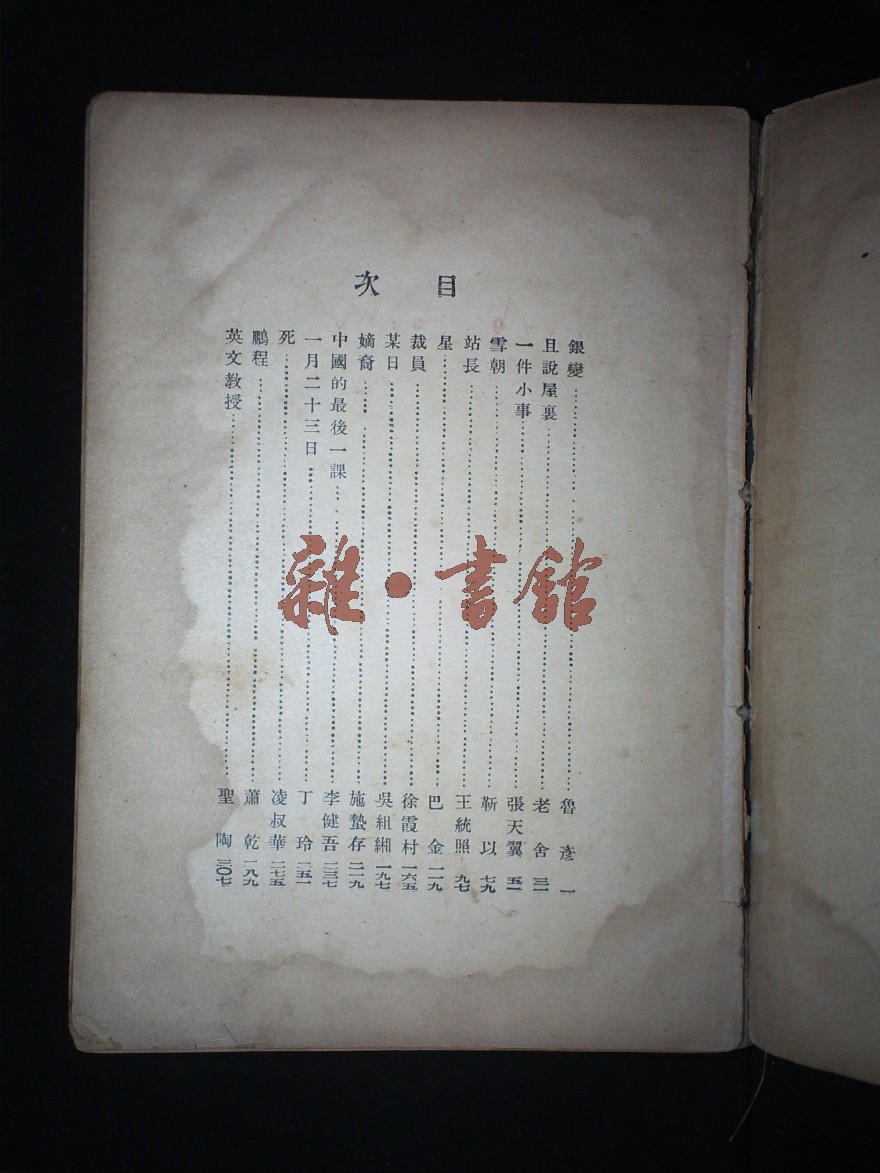 目次
銀變 魯彥 一
且說屋裏 老舍 三一
一件小事 張天翼 五一
雪朝 靳以 七九
站長 王統照 九七
星 巴金 一一九
裁員 徐霞村 一六五
某日 吳組緗 一九七
嫡裔 施蟄存 二一九
中國的最後一課 李健吾 二三七
一月二十三日 丁玲 二五一
死 凌叔華 二七五
鵬程 蕭乾 一八九
英文教授 聖陶 三〇七
雜•書館